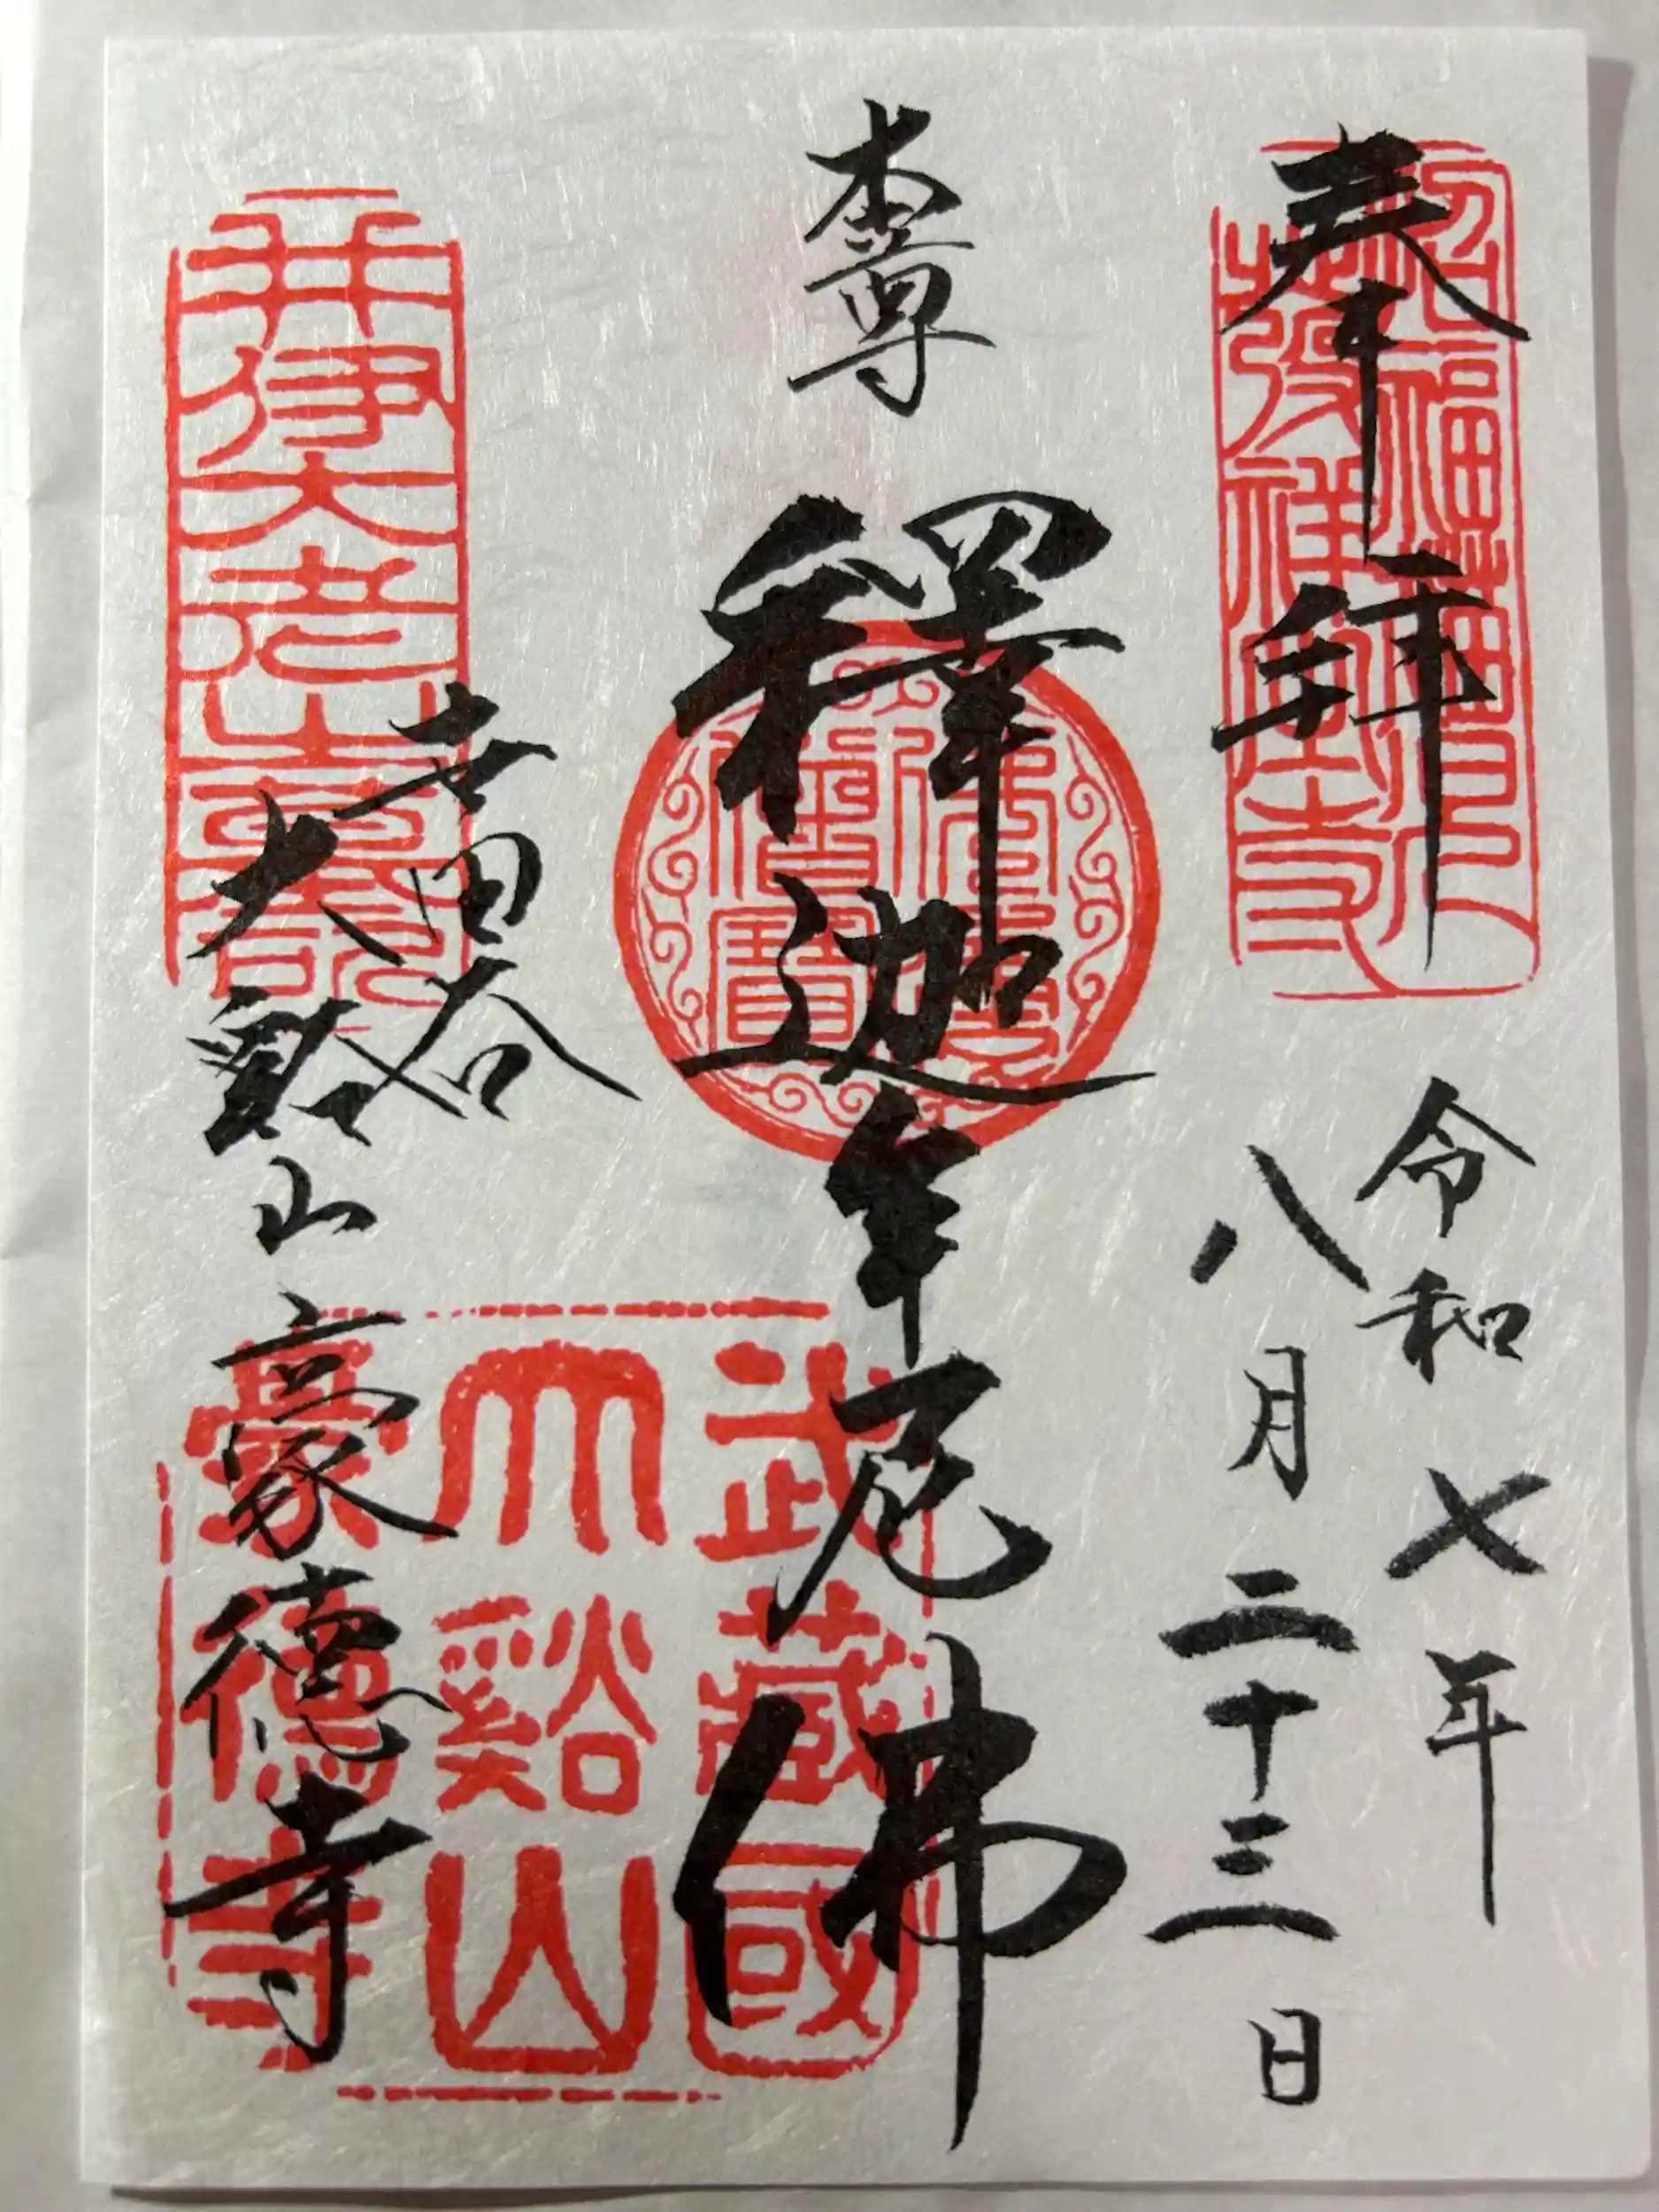 奉拜
令和七年
八月二十三日
本尊
釋迦牟尼佛
世田谷
大谿山豪德寺
招福猫児
発祥之寺
佛法僧寶
井伊大老
武藏國
大谿山
豪德寺